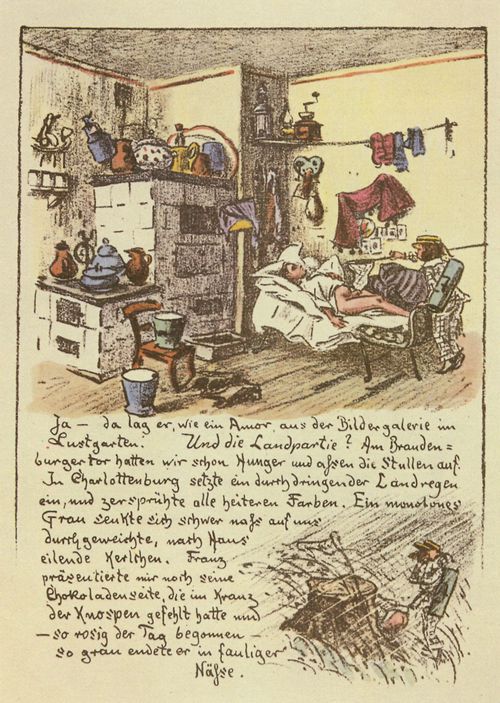 Ja — da lag er, wie ein Amor, aus der Bildergalerie im
Lustgarten! Und die Landpartie? Am Branden=
burger tor hatten wir schon Hunger und assen die Stullen auf.
In Charlottenburg setzte ein durchdringender Landregen
ein, und zersprühte alle heiteren Farben. Ein monotones
Grau senkte sich schwer nass auf uns
durchgeweichte, nach Haus
eilende Kerlchen. Franz
präsentierte mir noch seine
Chokoladenseite, die im Kranz
der Knospen gefehlt hatte und
— so rosig der Tag begonnen —
so grau endete er in fauliger
Nässe.